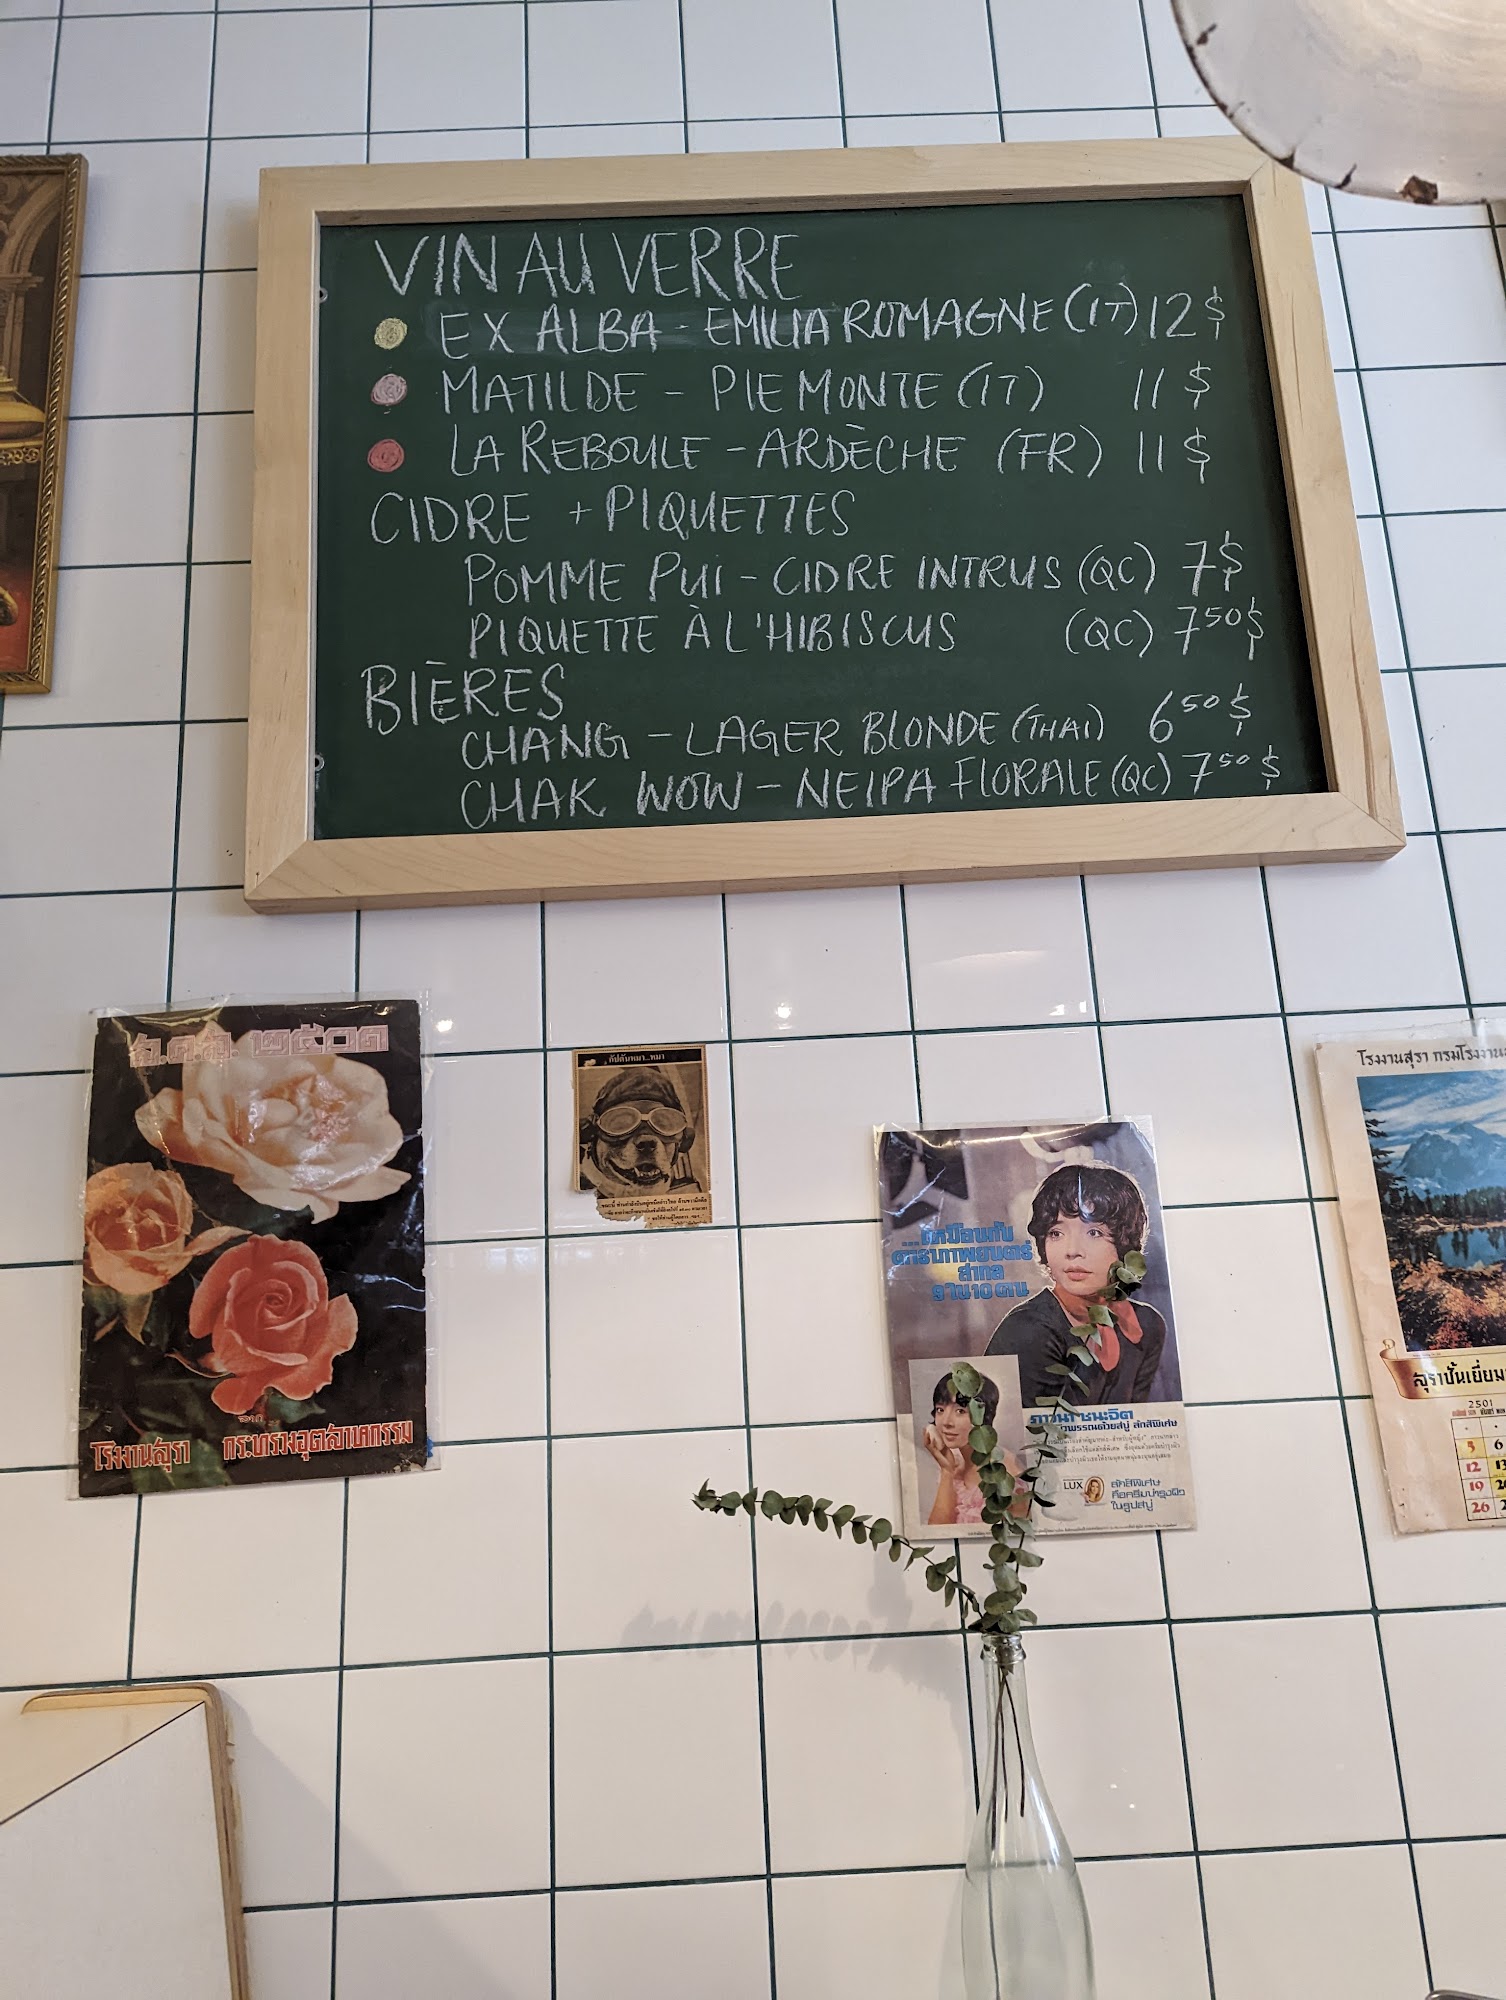 VIN AU VERRE
EX ALBA - EMILIA ROMAGNE (IT) 12$
MATILDE - PIEMONTE (IT) 11$
LA REBOULE - ARDÈCHE (FR) 11$
CIDRE + PIQUETTES
POMME PUI - CIDRE INTRUS (QC) 7$
PIQUETTE À L'HIBISCUS (QC) 750$
BIÈRES
CHANG - LAGER BLONDE (THAI) 650$
CHAK WOW - NEIPA FLORALE (QC) 750$
ส.ค.ส. ๒๕๐๓
โรงงานสุรา กระทรวงอุตสาหกรรม
กัปตันหมา...หมา
...เหมือนกับ
ดาราภาพยนตร์
สากล
9 ใน 10 คน
ภาวนา ชนะจิต
ผิวพรรณด้วยสบู่ ลักส์พิเศษ
LUX
ลักส์พิเศษ
คือครีมบำรุงผิว
ในรูปสบู่
โรงงานสุรา กรมโรงงาน
สุราปั้นเยี่ยม
2501
5 6
12 13
19
26